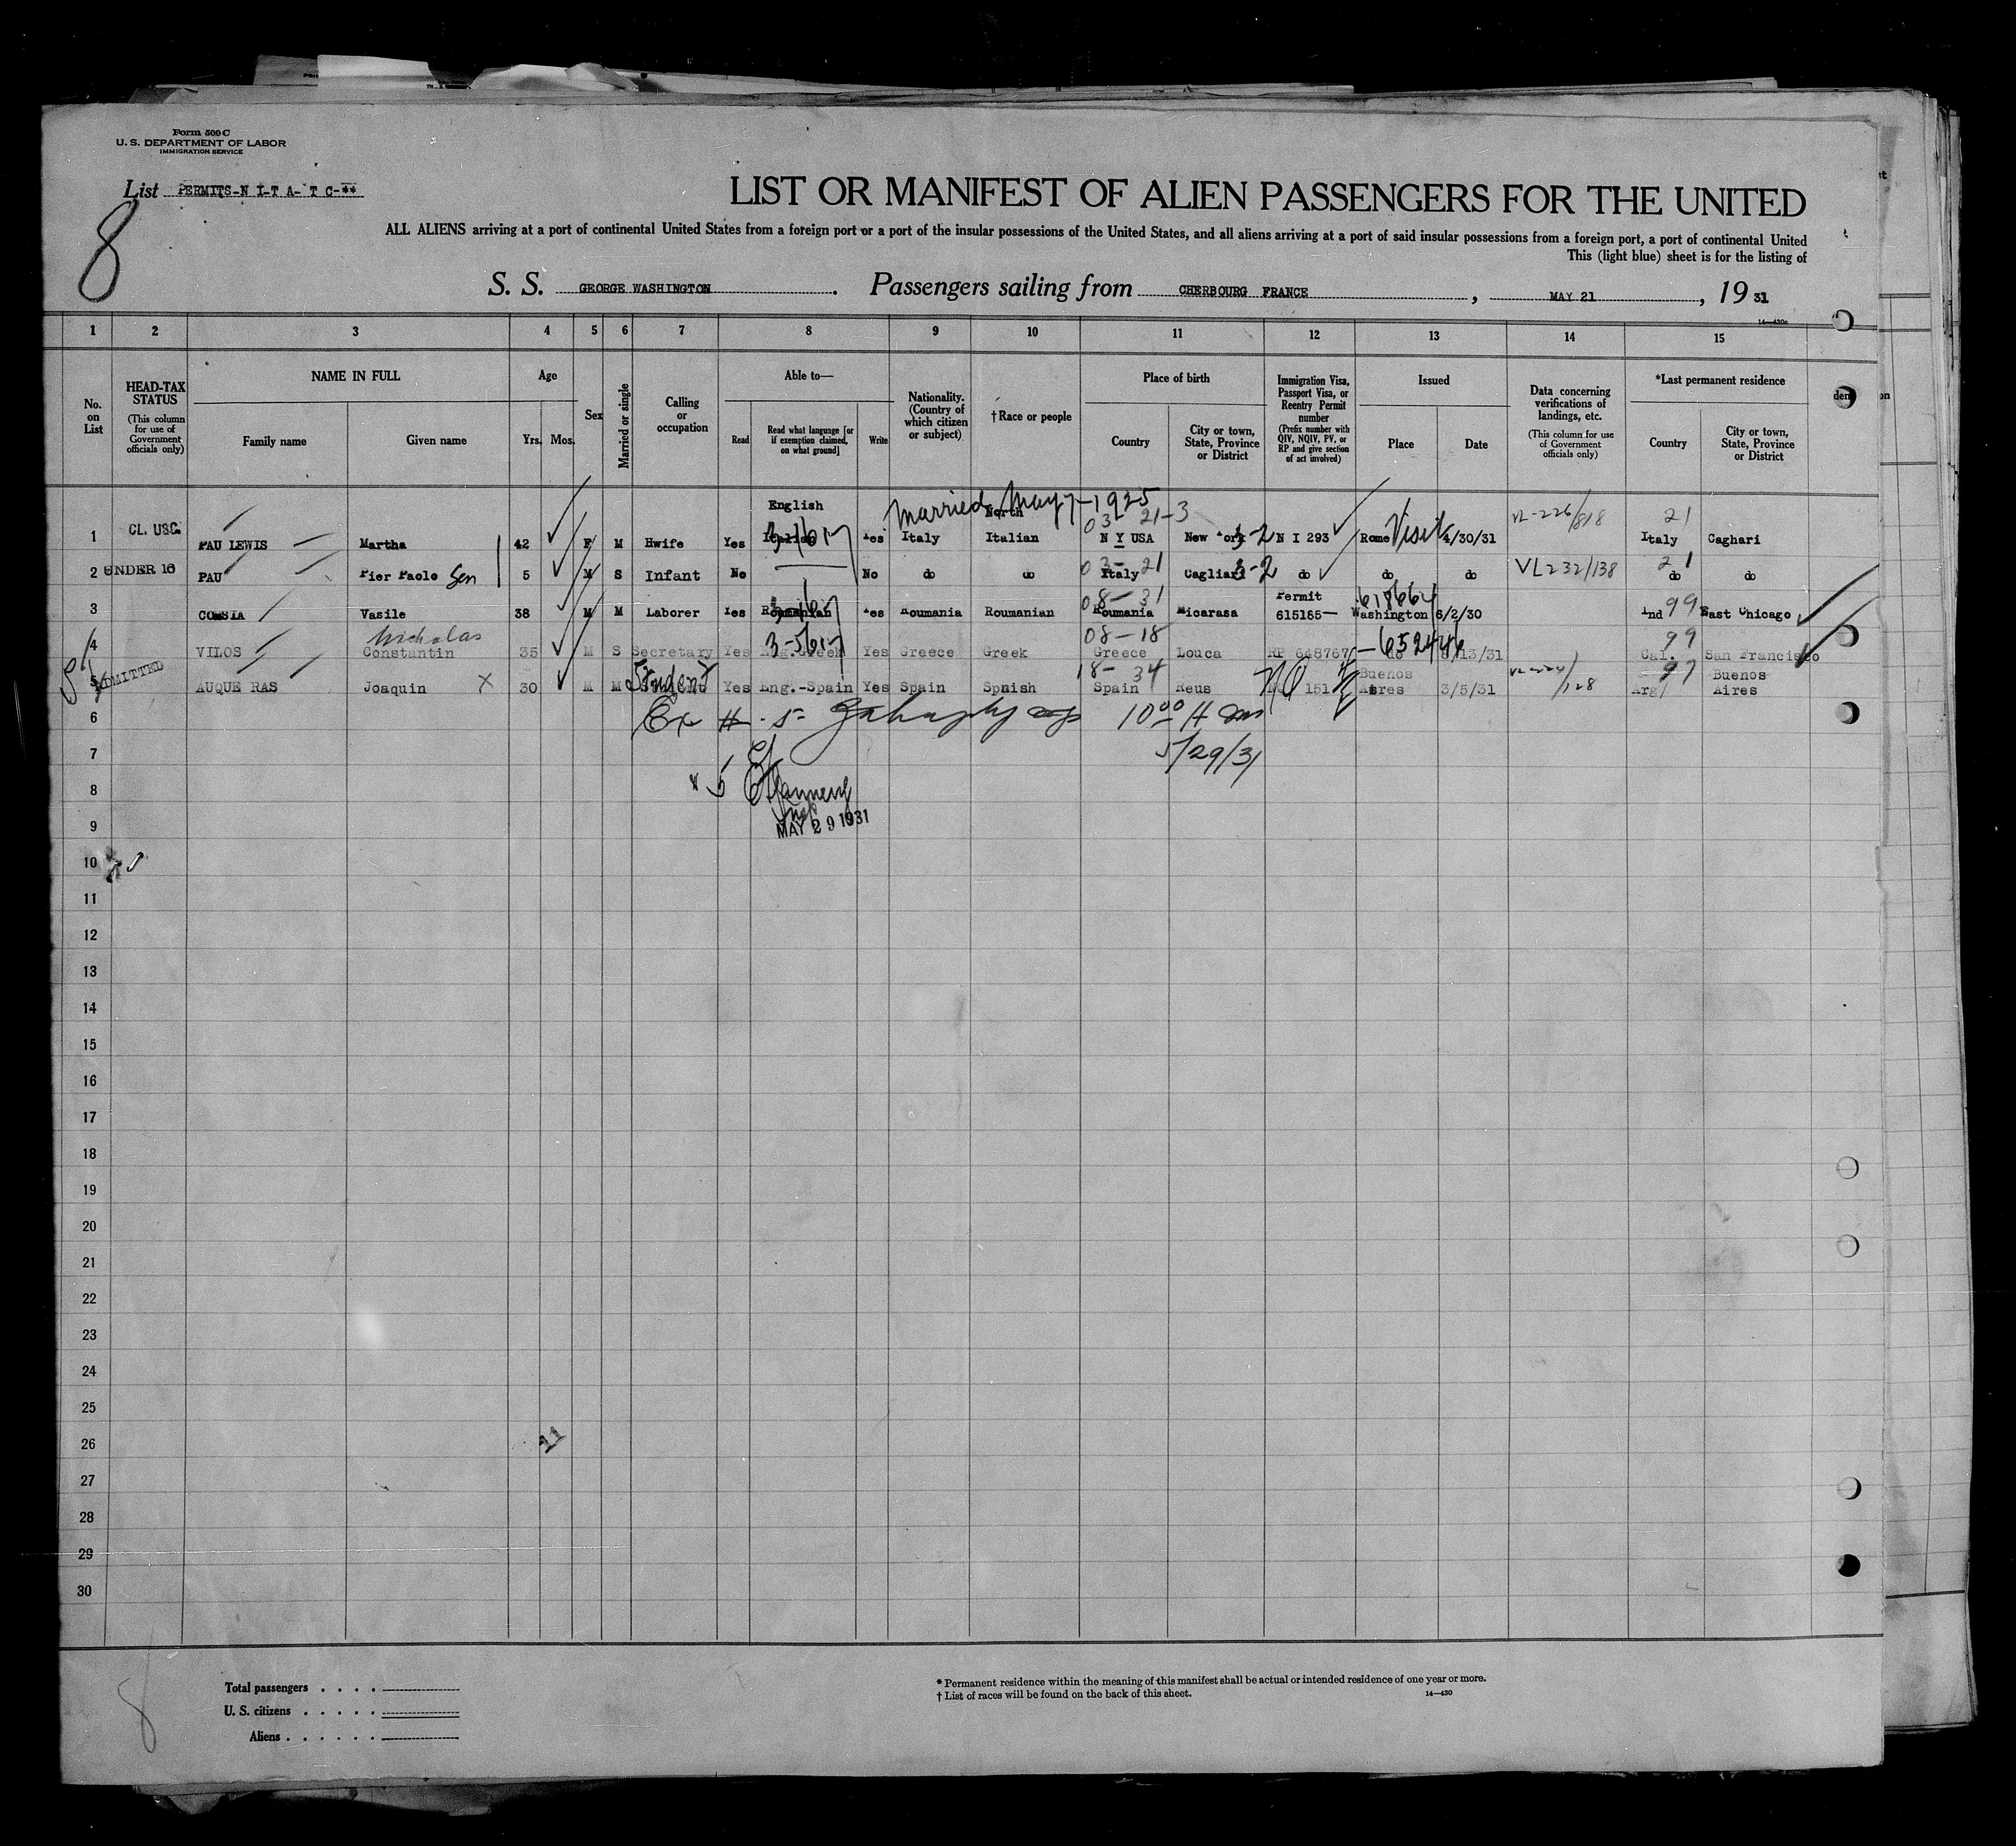 Form 500 C
U. S. DEPARTMENT OF LABOR
IMMIGRATION SERVICE
List PERMITS-N I-T A- T C-**
8
LIST OR MANIFEST OF ALIEN PASSENGERS FOR THE UNITED
ALL ALIENS arriving at a port of continental United States from a foreign port or a port of the insular possessions of the United States, and all aliens arriving at a port of said insular possessions from a foreign port, a port of continental United
This (light blue) sheet is for the listing of
S. S. GEORGE WASHINGTON . Passengers sailing from CHERBOURG FRANCE , MAY 21 , 19 31
14—430a
1 2 3 4 5 6 7 8 9 10 11 12 13 14 15
No. on List
HEAD-TAX STATUS (This column for use of Government officials only)
NAME IN FULL
Family name Given name
Age
Yrs. Mos.
Sex
Married or single
Calling or occupation
Able to—
Read Read what language [or if exemption claimed, on what ground] Write
Nationality. (Country of which citizen or subject)
† Race or people
Place of birth
Country City or town, State, Province or District
Immigration Visa, Passport Visa, or Reentry Permit number (Prefix number with QIV, NQIV, PV, or RP and give section of act involved)
Issued
Place Date
Data concerning verifications of landings, etc. (This column for use of Government officials only)
*Last permanent residence
Country City or town, State, Province or District
English Married May 7-1925
North 03- 21-3 VL-226/818 21
1 CL. USC. PAU LEWIS Martha 42 F M Hwife Yes Italian Yes Italy Italian N Y USA New York 3-2 N I 293 Rome Visit 4/30/31 Italy Caghari
03- 21 VL232/138 21
2 UNDER 16 PAU Pier Paolo Son 5 M S Infant No No do do Italy Cagliari 3-2 do do do do do
08-31 Permit 618664 99
3 COMSIA Vasile 38 M M Laborer Yes Roumanian Yes Roumania Roumanian Roumania Micarasa 615185— Washington 6/2/30 Ind East Chicago
Nicholas 08-18 —652446 99
4 VILOS Constantin 35 M S Secretary Yes Eng.Greek Yes Greece Greek Greece Louca RP 648767 do 8/13/31 Cal. San Francisco
ADMITTED Student 18- 34 Buenos 97 Buenos
5 AUQUE RAS Joaquin X 30 M M Yes Eng.-Spain Yes Spain Spnish Spain Reus NQ 151 Aires 3/5/31 Arg/ Aires
6 Ex # 5 10 00
7 5/29/31
8 5
9 MAY 29 1931
10
11
12
13
14
15
16
17
18
19
20
21
22
23
24
25
26
27
28
29
30
Total passengers . . . .
U. S. citizens . . . . .
Aliens . . . . . .
* Permanent residence within the meaning of this manifest shall be actual or intended residence of one year or more.
† List of races will be found on the back of this sheet.
14—430